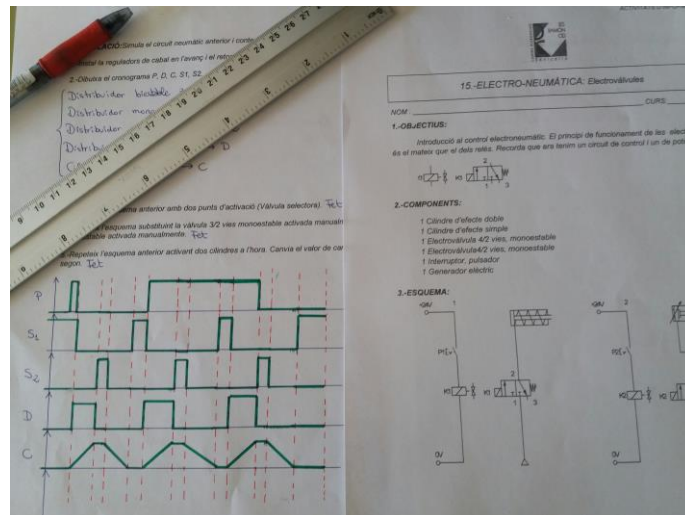 LACIÓ: Simula el circuit neumàtic anterior i
reguladors de cabal en l'avanç i el
2.-Dibuixa el cronograma P, D, C, S1, S2
Distribuidor biestable
Distribuidor
Distribuidor
→ D
→ C
ema anterior amb dos punts d'activació (Vàlvula selectora). Fet
l'esquema substituint la vàlvula 3/2 vies monoestable activada
activada manualment. Fet
-Repeteix l'esquema anterior activant dos cilindres a l'hora. Canvia el valor de
segon. Fet
P
S1
S2
D
C
9 10 11 12 13 14 15 16 17 18 19 20 21 22 23 24 25 26 27
15.-ELECTRO-NEUMÀTICA: Electrovàlvules
NOM:
CURS:
1.-OBJECTIUS:
Introducció al control electroneumàtic. El principi de funcionament de les
és el mateix que el dels relés. Recorda que ara tenim un circuit de control i un de
2
1 3
2.-COMPONENTS:
1 Cilindre d'efecte doble
1 Cilindre d'efecte simple
1 Electrovàlvula 4/2 vies, monoestable
1 Electrovàlvula4/2 vies, monoestable
1 Interruptor, pulsador
1 Generador elèctric
3.-ESQUEMA:
1
2
2
1 3
0V
0V